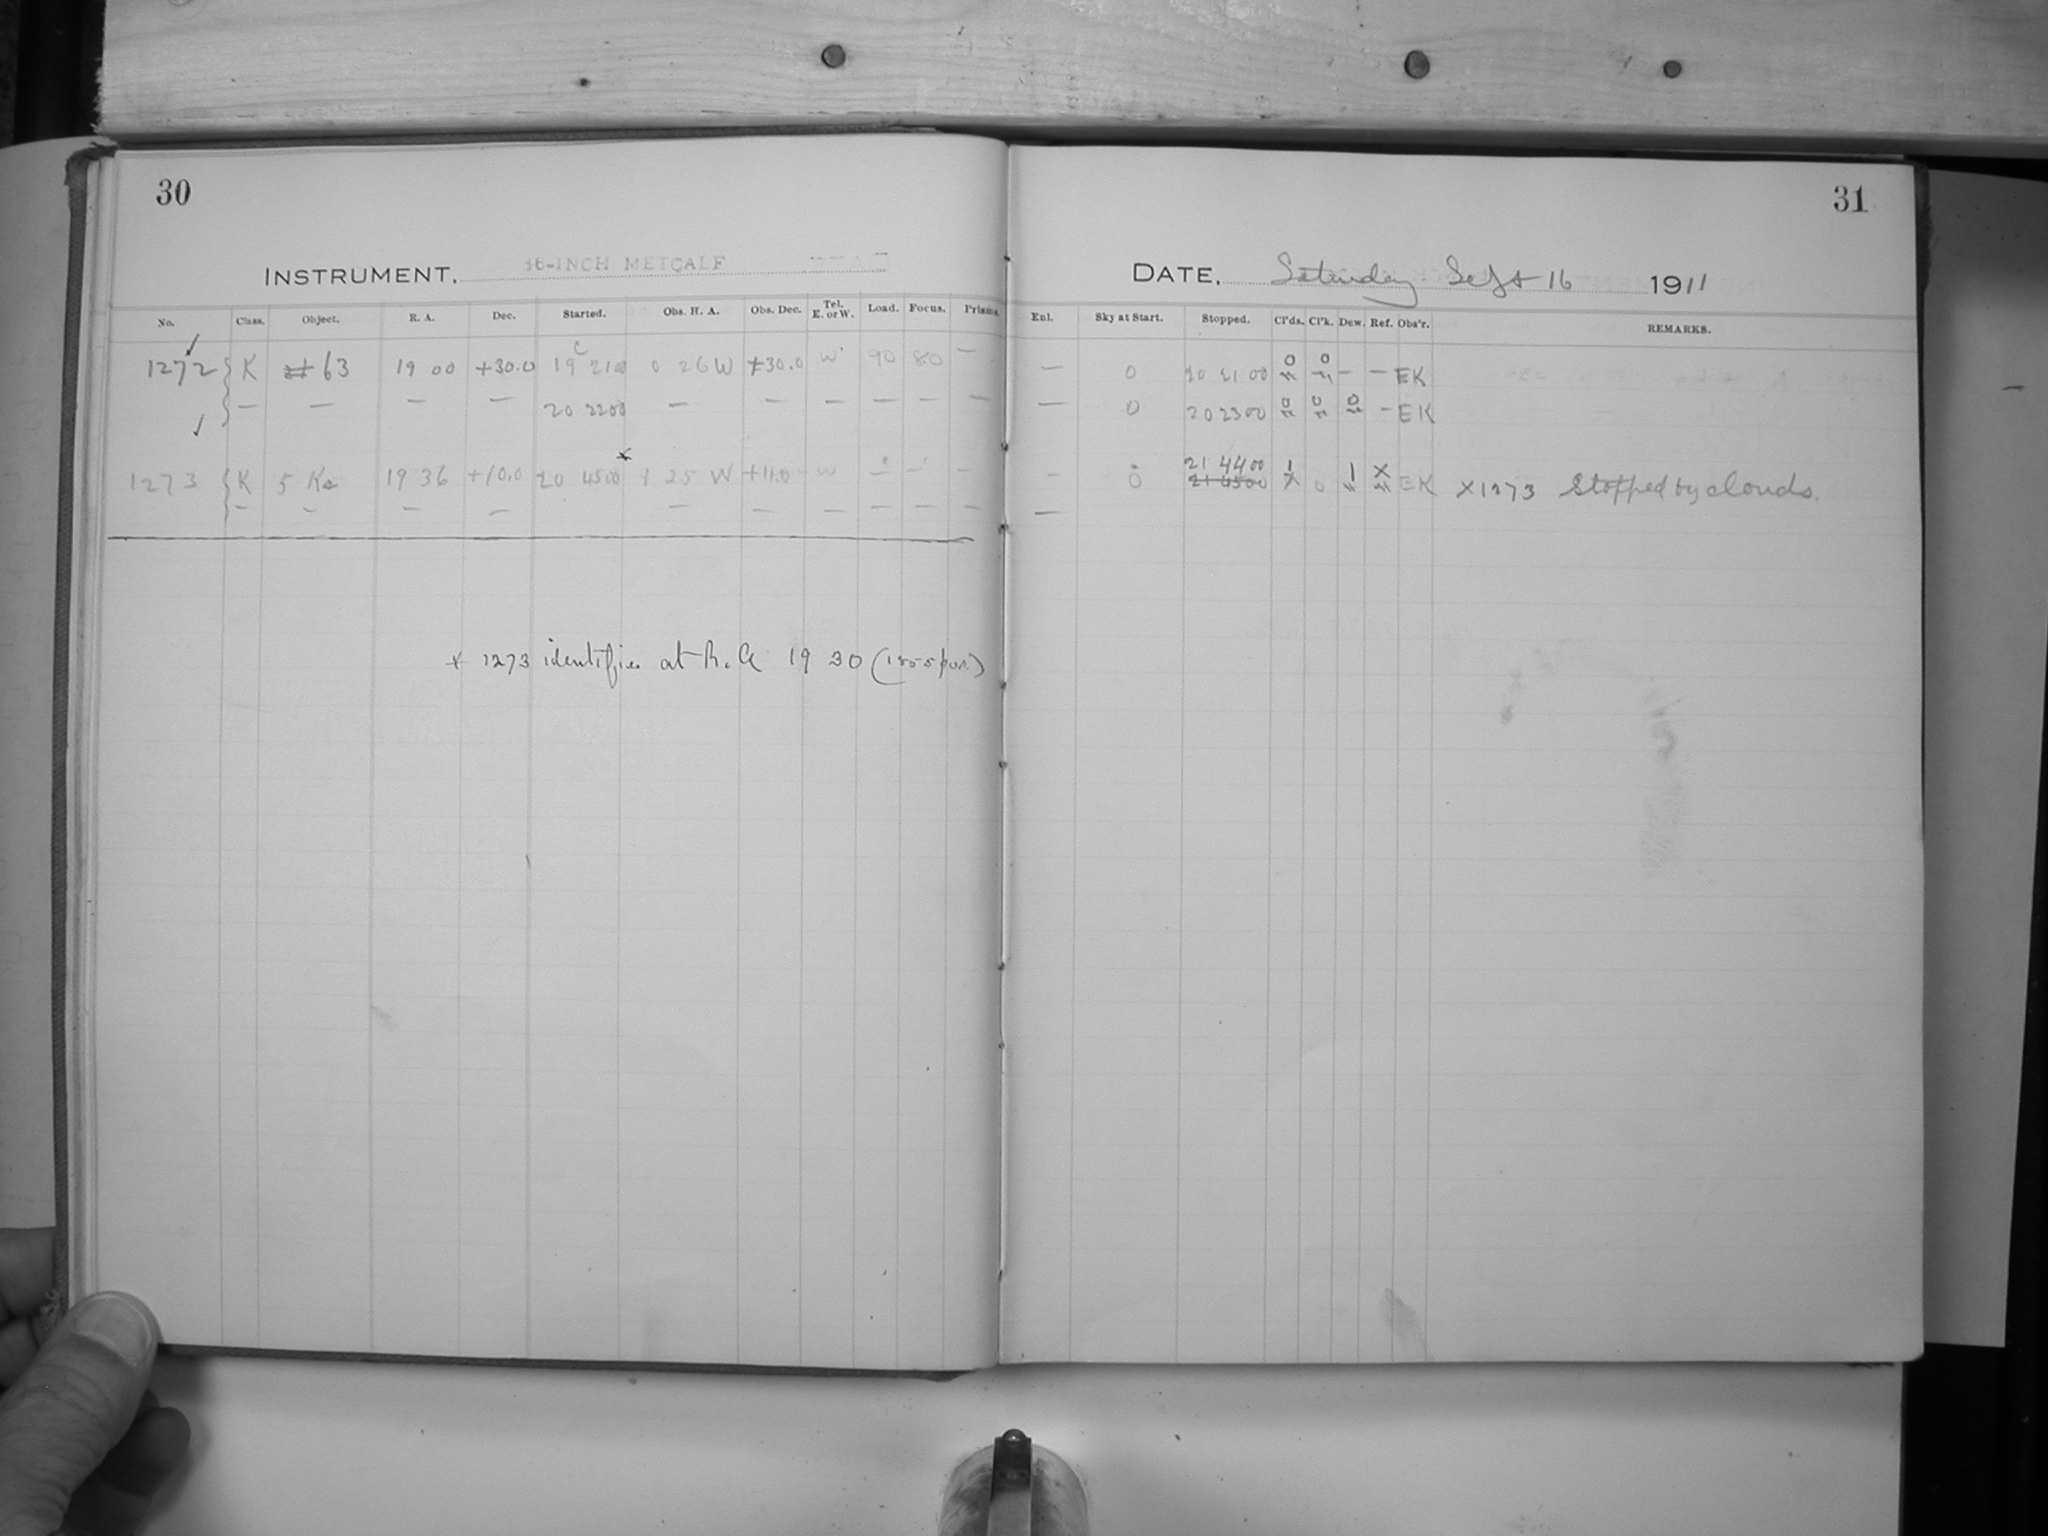 30
INSTRUMENT. 16-INCH METCALF
No. Class. Object. R. A. Dec. Started. Obs. H. A. Obs. Dec. Tel. E. or W. Load. Focus. Prisms.
1272 K 63 19 00 +30.0 19 21 00 0 26 W +30.0 W 90 8.0 —
— — — — 20 22 00 — — — — — —
1273 K 5 19 36 +10.0 20 45 00 1 25 W +11.0 W — — —
— — — — — — — — — —
x 1273 identifies at R.A 19 30 (1855 pos.)
31
DATE. Saturday Sept 16 1911
Enl. Sky at Start. Stopped. Cl'ds. Cl'k. Dew. Ref. Obs'r. REMARKS.
— 0 20 21 00 0 0 — — EK
— 0 20 23 00 0 0 0 — EK
21 44 00
— 0 21 45 00 1 0 1 X EK X 1273 Stopped by clouds.
—